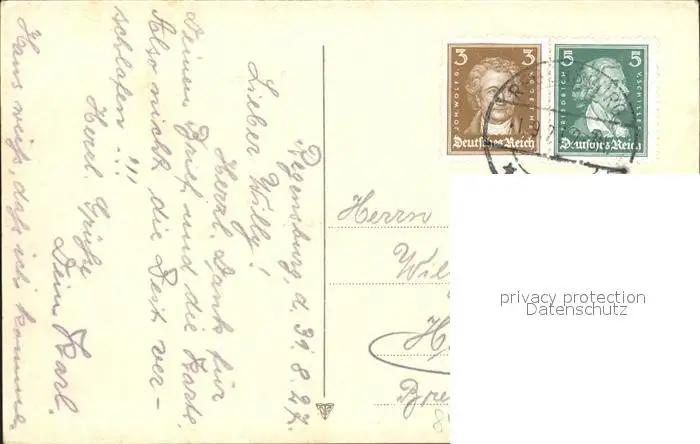 Regensburg, d. 31.8.27.
Lieber Willy!
Herzl. Dank für
Deinen Brief und die Karte.
Also nicht die Zeit ver-
schlafen -!!!
Herzl. Grüße
Dein Karl.
Hans weiß, daß ich komme.
3 3
JOH. WOLFG. V. GOETHE
Deutsches Reich
5 5
FRIEDRICH V. SCHILLER
Deutsches Reich
Herrn
Wil
H
Bre
privacy protection
Datenschutz